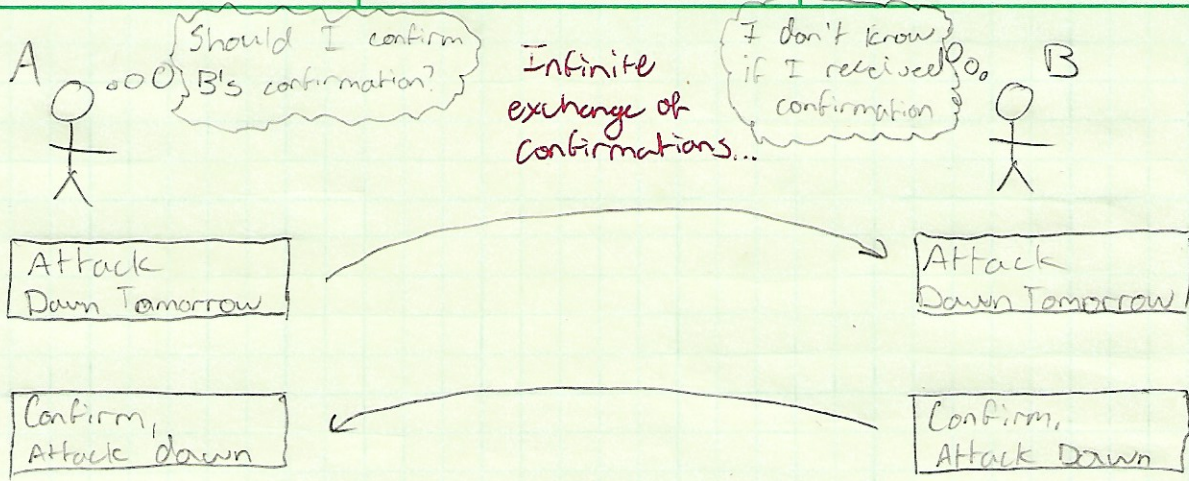 A
Should I confirm
B's confirmation?
Infinite
exchange of
confirmations...
I don't know
if I received
confirmation
B
Attack
Dawn Tomorrow
Attack
Dawn Tomorrow
Confirm,
Attack dawn
Confirm,
Attack Dawn